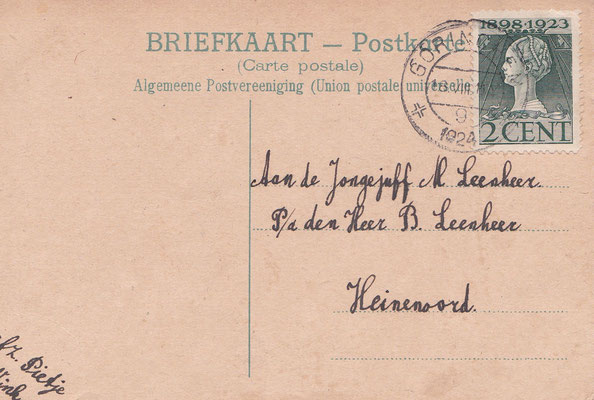 BRIEFKAART — Postkarte
(Carte postale)
Algemeene Postvereeniging (Union postale universelle
1898·1923
2 CENT
1924
Aan de Jongejuff M. Leenheer.
P/a den Heer B. Leenheer
Heinenoord.
Pietje